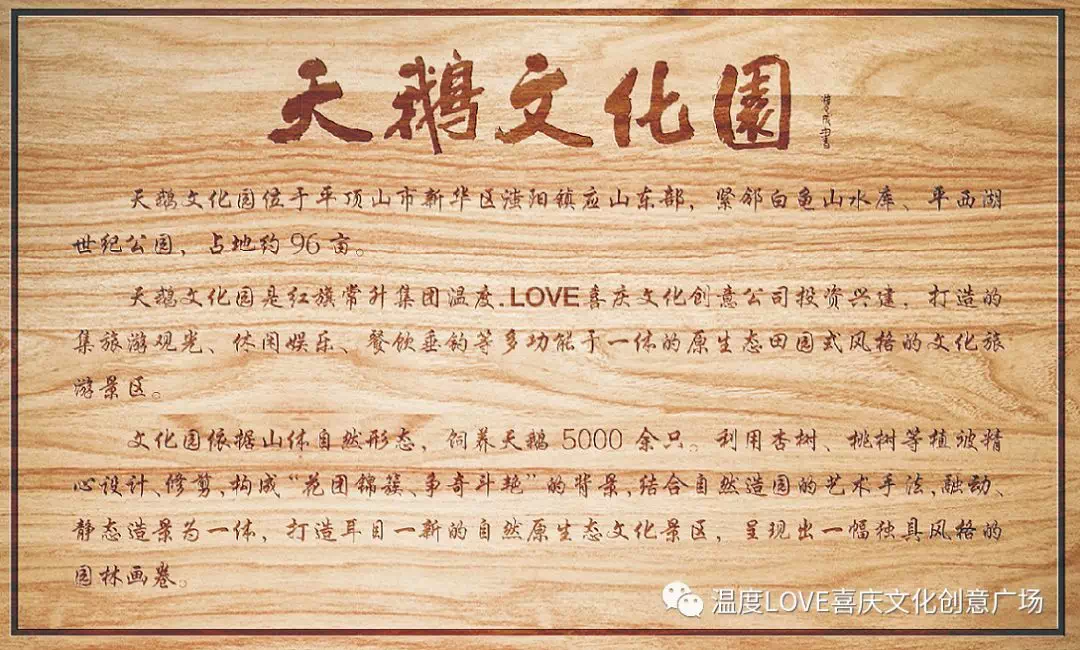 天鹅文化園
天鹅文化园位于平顶山市新华区滍阳镇应山东部，紧邻白龟山水库、平西湖
世纪公园，占地约96亩。
天鹅文化园是红旗常升集团温度.LOVE喜庆文化创意公司投资兴建，打造的
集旅游观光、休闲娱乐、餐饮垂钓等多功能于一体的原生态田园式风格的文化旅
游景区。
文化园依据山体自然形态，饲养天鹅5000余只。利用杏树、桃树等植被精
心设计、修剪，构成“花团锦簇、争奇斗艳”的背景，结合自然造园的艺术手法，融动、
静态造景为一体，打造耳目一新的自然原生态文化景区，呈现出一幅独具风格的
园林画卷。
温度LOVE喜庆文化创意广场